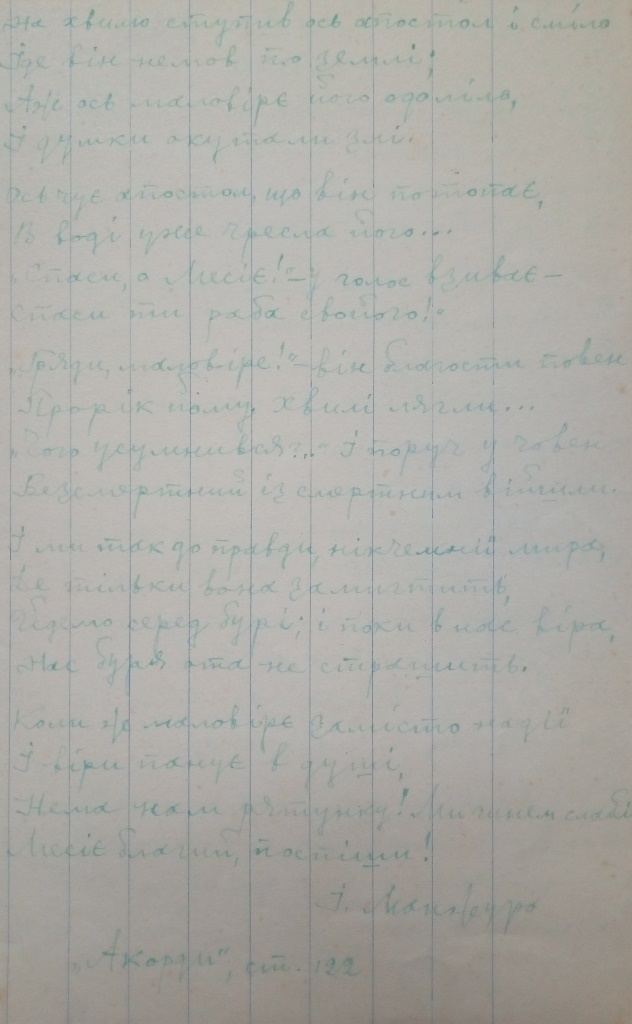 На хвилю ступив ось апостол і сміло
Іде він немов по землі;
Аж ось маловірє його одоліло,
І думки окутали злі.
Ось чує апостол, що він потопає,
В воді уже чресла його...
„Спаси, о Месіє!“ – у голос взиває –
Спаси ти раба свойого!“
„Гряди, маловіре!“ – він благости повен
Прорік йому. Хвилі лягли...
„Чого усумнився?..“ І поруч у човен
Безсмертний із смертним ввійшли.
І ми так до правди, нікчемнії мира,
Де тільки вона замигтить,
Ідемо серед бурі; і поки в нас віра,
Нас буря ота не страшить.
Коли ж маловірє замісто надії
І віри панує в душі,
Нема нам рятунку! Ми гинем слабі
Месіє благий, поспіши!
І. Манжура
„Акорди“, ст. 122